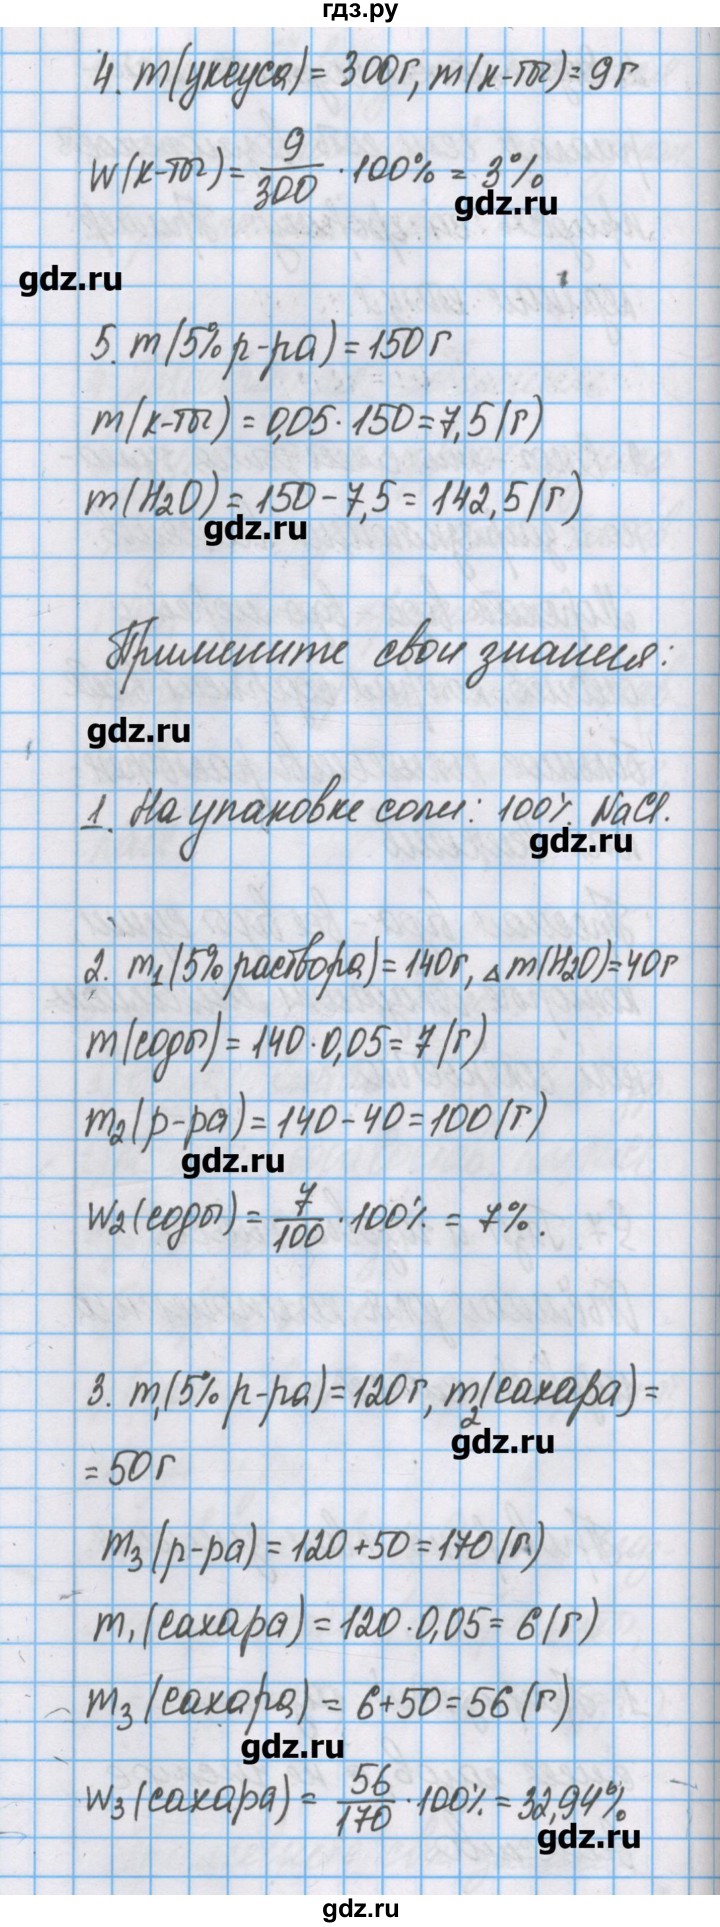 гдз.ру
4. m(уксуса) = 300г, m(к-ты) = 9г
W(к-ты) = 9/300 · 100% = 3%
gdz.ru
gdz.ru
5. m(5% р-ра) = 150г
m(к-ты) = 0,05 · 150 = 7,5(г)
m(H2O) = 150 - 7,5 = 142,5(г)
gdz.ru
Примените свои знания:
gdz.ru
1. На упаковке соли: 100% NaCl.
gdz.ru
2. m1(5% раствора) = 140г, Δm(H2O) = 40г
m(соды) = 140 · 0,05 = 7(г)
m2(р-ра) = 140 - 40 = 100(г)
gdz.ru
W2(соды) = 7/100 · 100% = 7%.
3. m1(5% р-ра) = 120г, m2(сахара) =
gdz.ru
= 50г
m3(р-ра) = 120 + 50 = 170(г)
m1(сахара) = 120 · 0,05 = 6(г)
m3(сахара) = 6 + 50 = 56(г)
gdz.ru
W3(сахара) = 56/170 · 100% = 32,94%
gdz.ru
gdz.ru